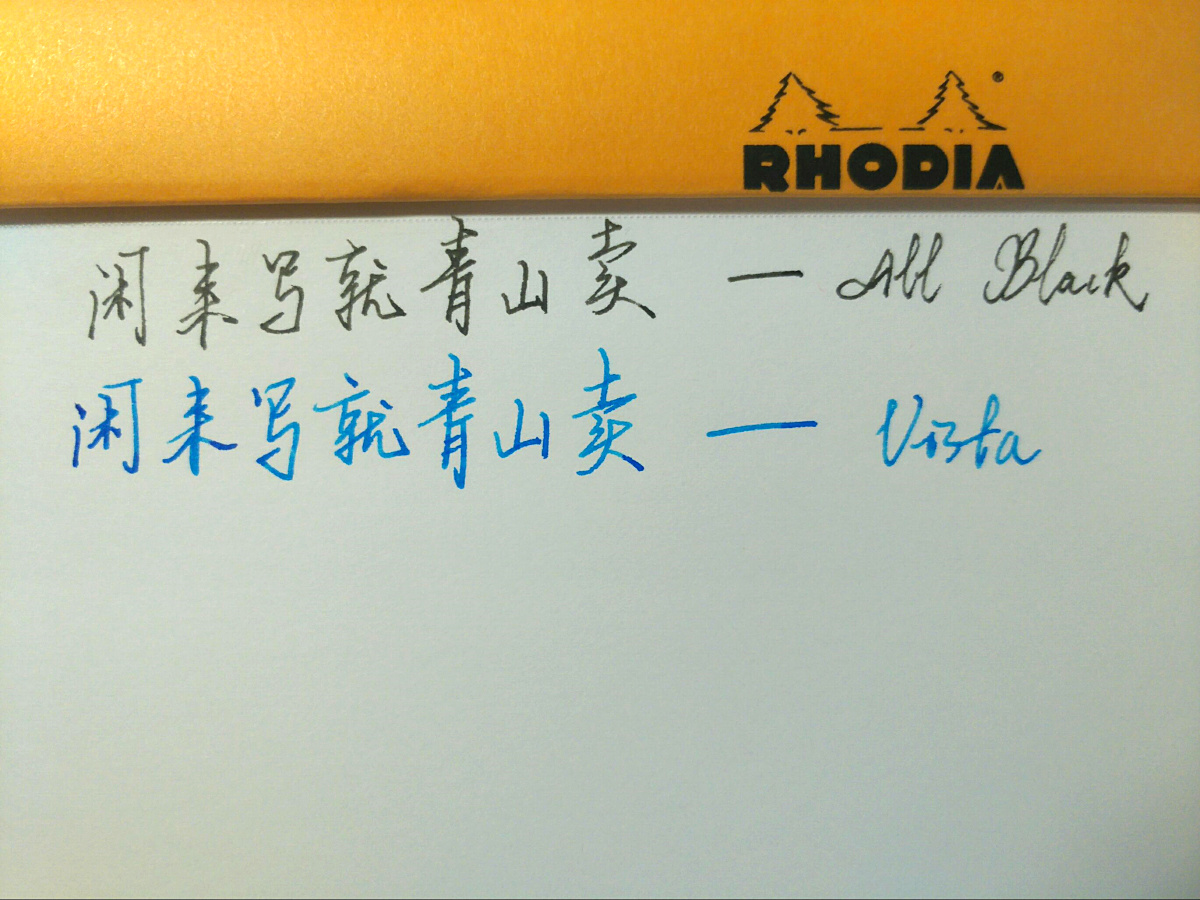 RHODIA
闲来写就青山卖 — All Black
闲来写就青山卖 — Vista